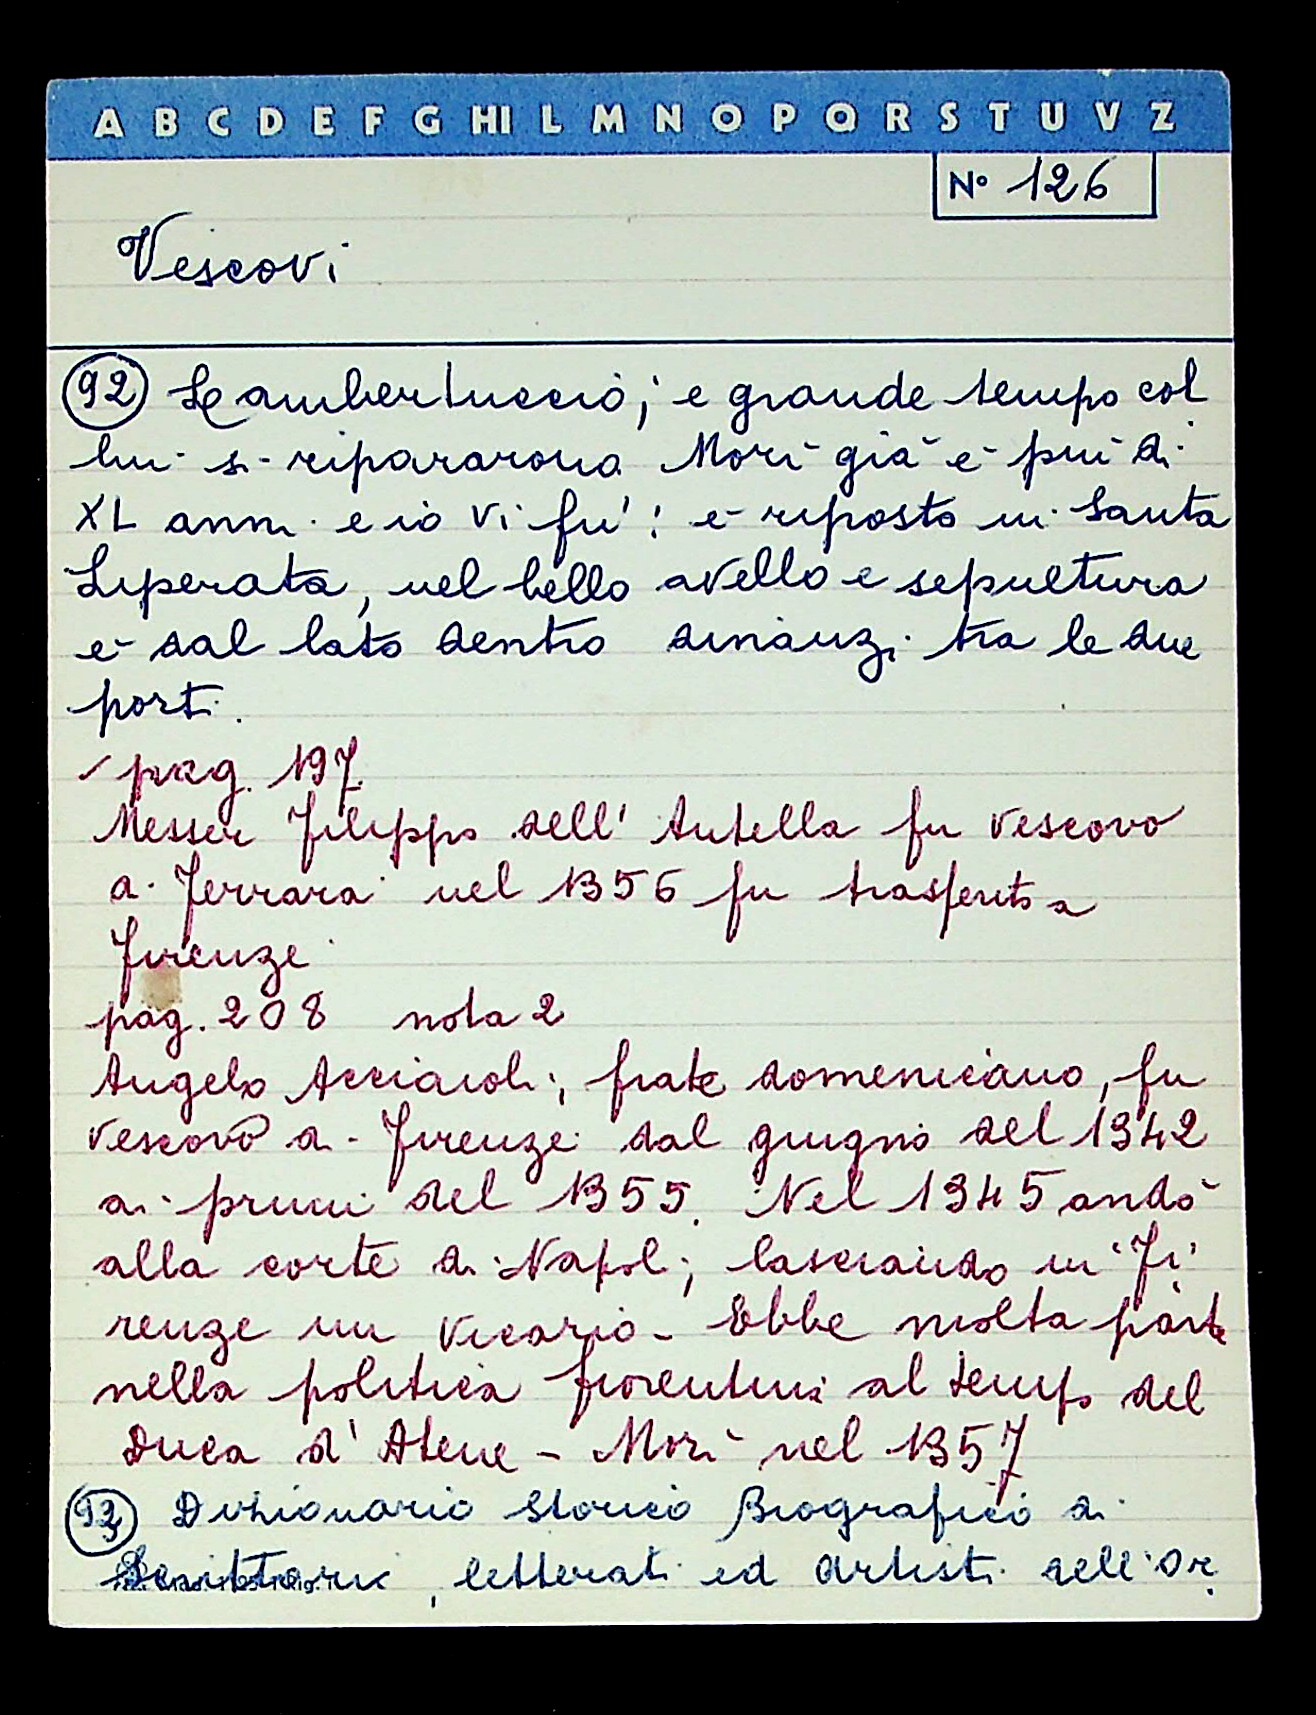 A B C D E F G HI L M N O P Q R S T U V Z
N° 126
Vescovi
92 Lambertuccio; e grande tempo col
lui si ripararono Morì già è più di
XL anni e io vi fu': è riposto in Santa
Liperata, nel bello avello e sepultura
è dal lato dentro dinanzi tra le due
porti.
pag. 197.
Messer Filippo dell'Antella fu vescovo
di Ferrara nel 1356 fu trasferito a
Firenze
pag. 208 nota 2
Angelo Acciaioli, frate domenicano, fu
vescovo di Firenze dal giugno del 1342
ai primi del 1355. Nel 1345 andò
alla corte di Napoli, lasciando in Fi
renze un vicario - Ebbe molta parte
nella politica fiorentina al tempo del
Duca d'Atene - Morì nel 1357
93 Dizionario Storico Biografico di
Scrittori, letterati ed artisti dell'Or.